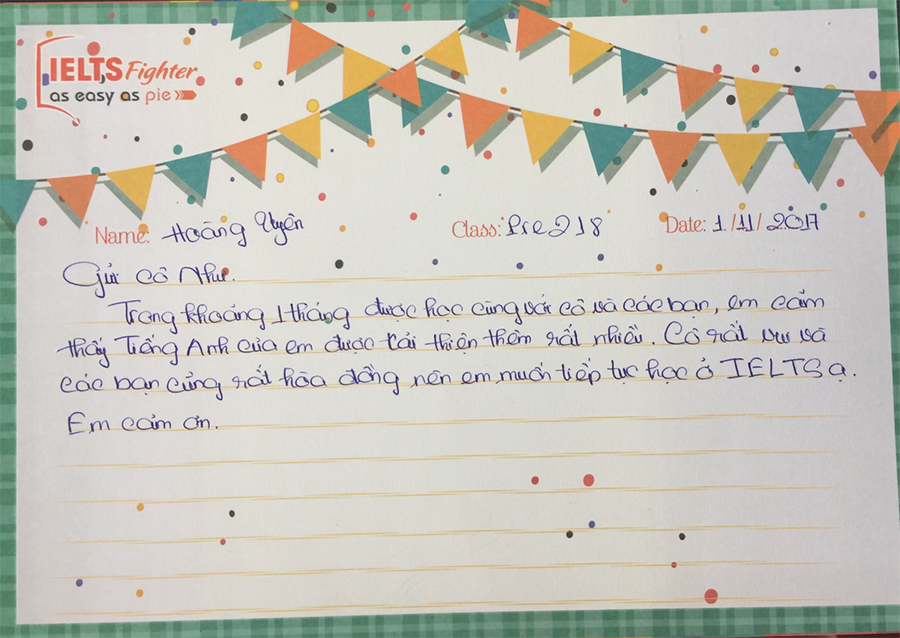 IELTS Fighter
as easy as pie
Name: Hoàng Uyên Class: Pre 218 Date: 1/11/2017
Gửi cô Như.
Trong khoảng 1 tháng được học cùng với cô và các bạn, em cảm
thấy Tiếng Anh của em được cải thiện thêm rất nhiều. Cô rất vui và
các bạn cũng rất hòa đồng nên em muốn tiếp tục học ở IELTS ạ.
Em cảm ơn.